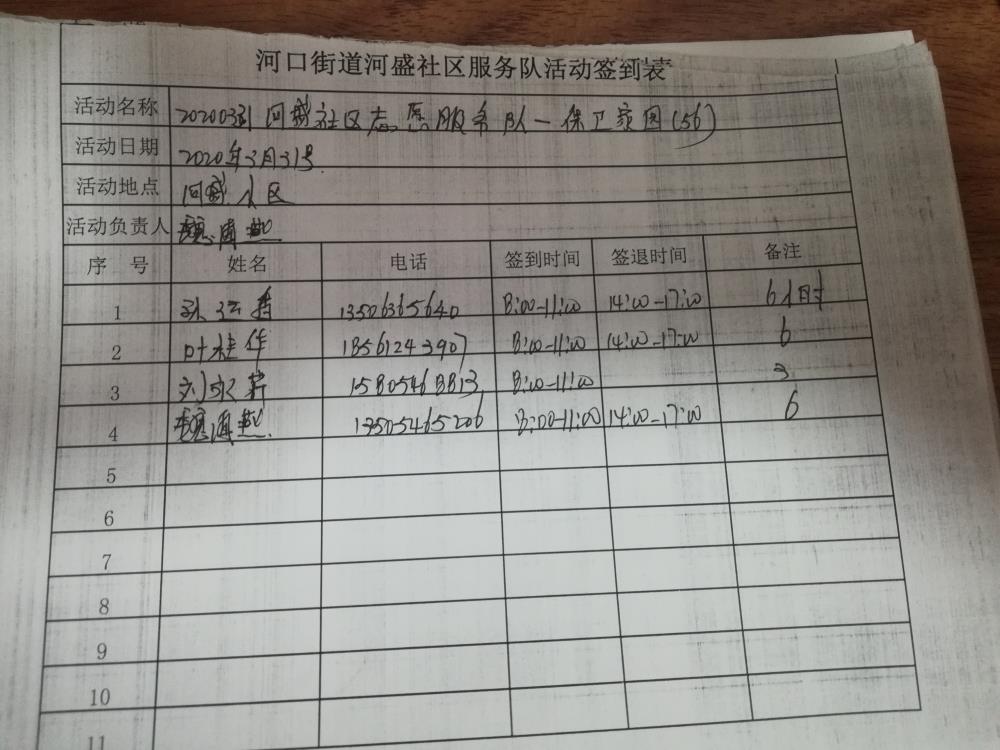 河口街道河盛社区服务队活动签到表
活动名称 20200331河盛社区志愿服务队一保卫家园(56)
活动日期 2020年3月31号
活动地点 河盛小区
活动负责人
序 号 姓名 电话 签到时间 签退时间 备注
1 13506365640 8:00-11:00 14:00-17:00 6小时
2 叶桂华 18561243907 8:00-11:00 14:00-17:00 6
3 刘永 15805468813 8:00-11:00 3
4 13505465206 8:00-11:00 14:00-17:00 6
5
6
7
8
9
10
11